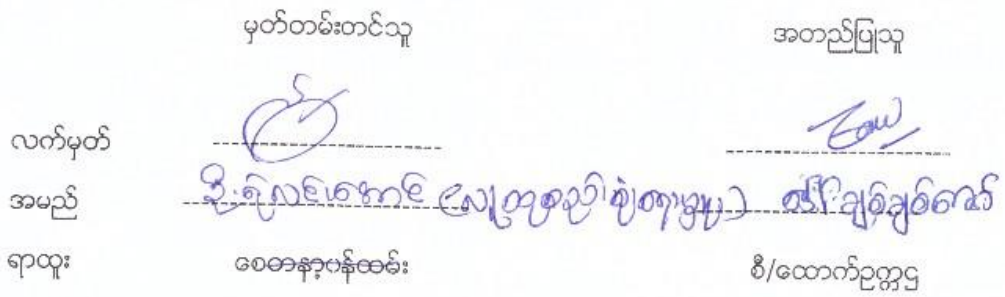 မှတ်တမ်းတင်သူ အတည်ပြုသူ
လက်မှတ်
အမည် ဦးရဲလင်းအောင် (လူထုစည်းရုံးရေးမှူး) ချစ်ချစ်ဇော်
ရာထူး စေတနာ့ဝန်ထမ်း စီ/ထောက်ဥက္ကဌ